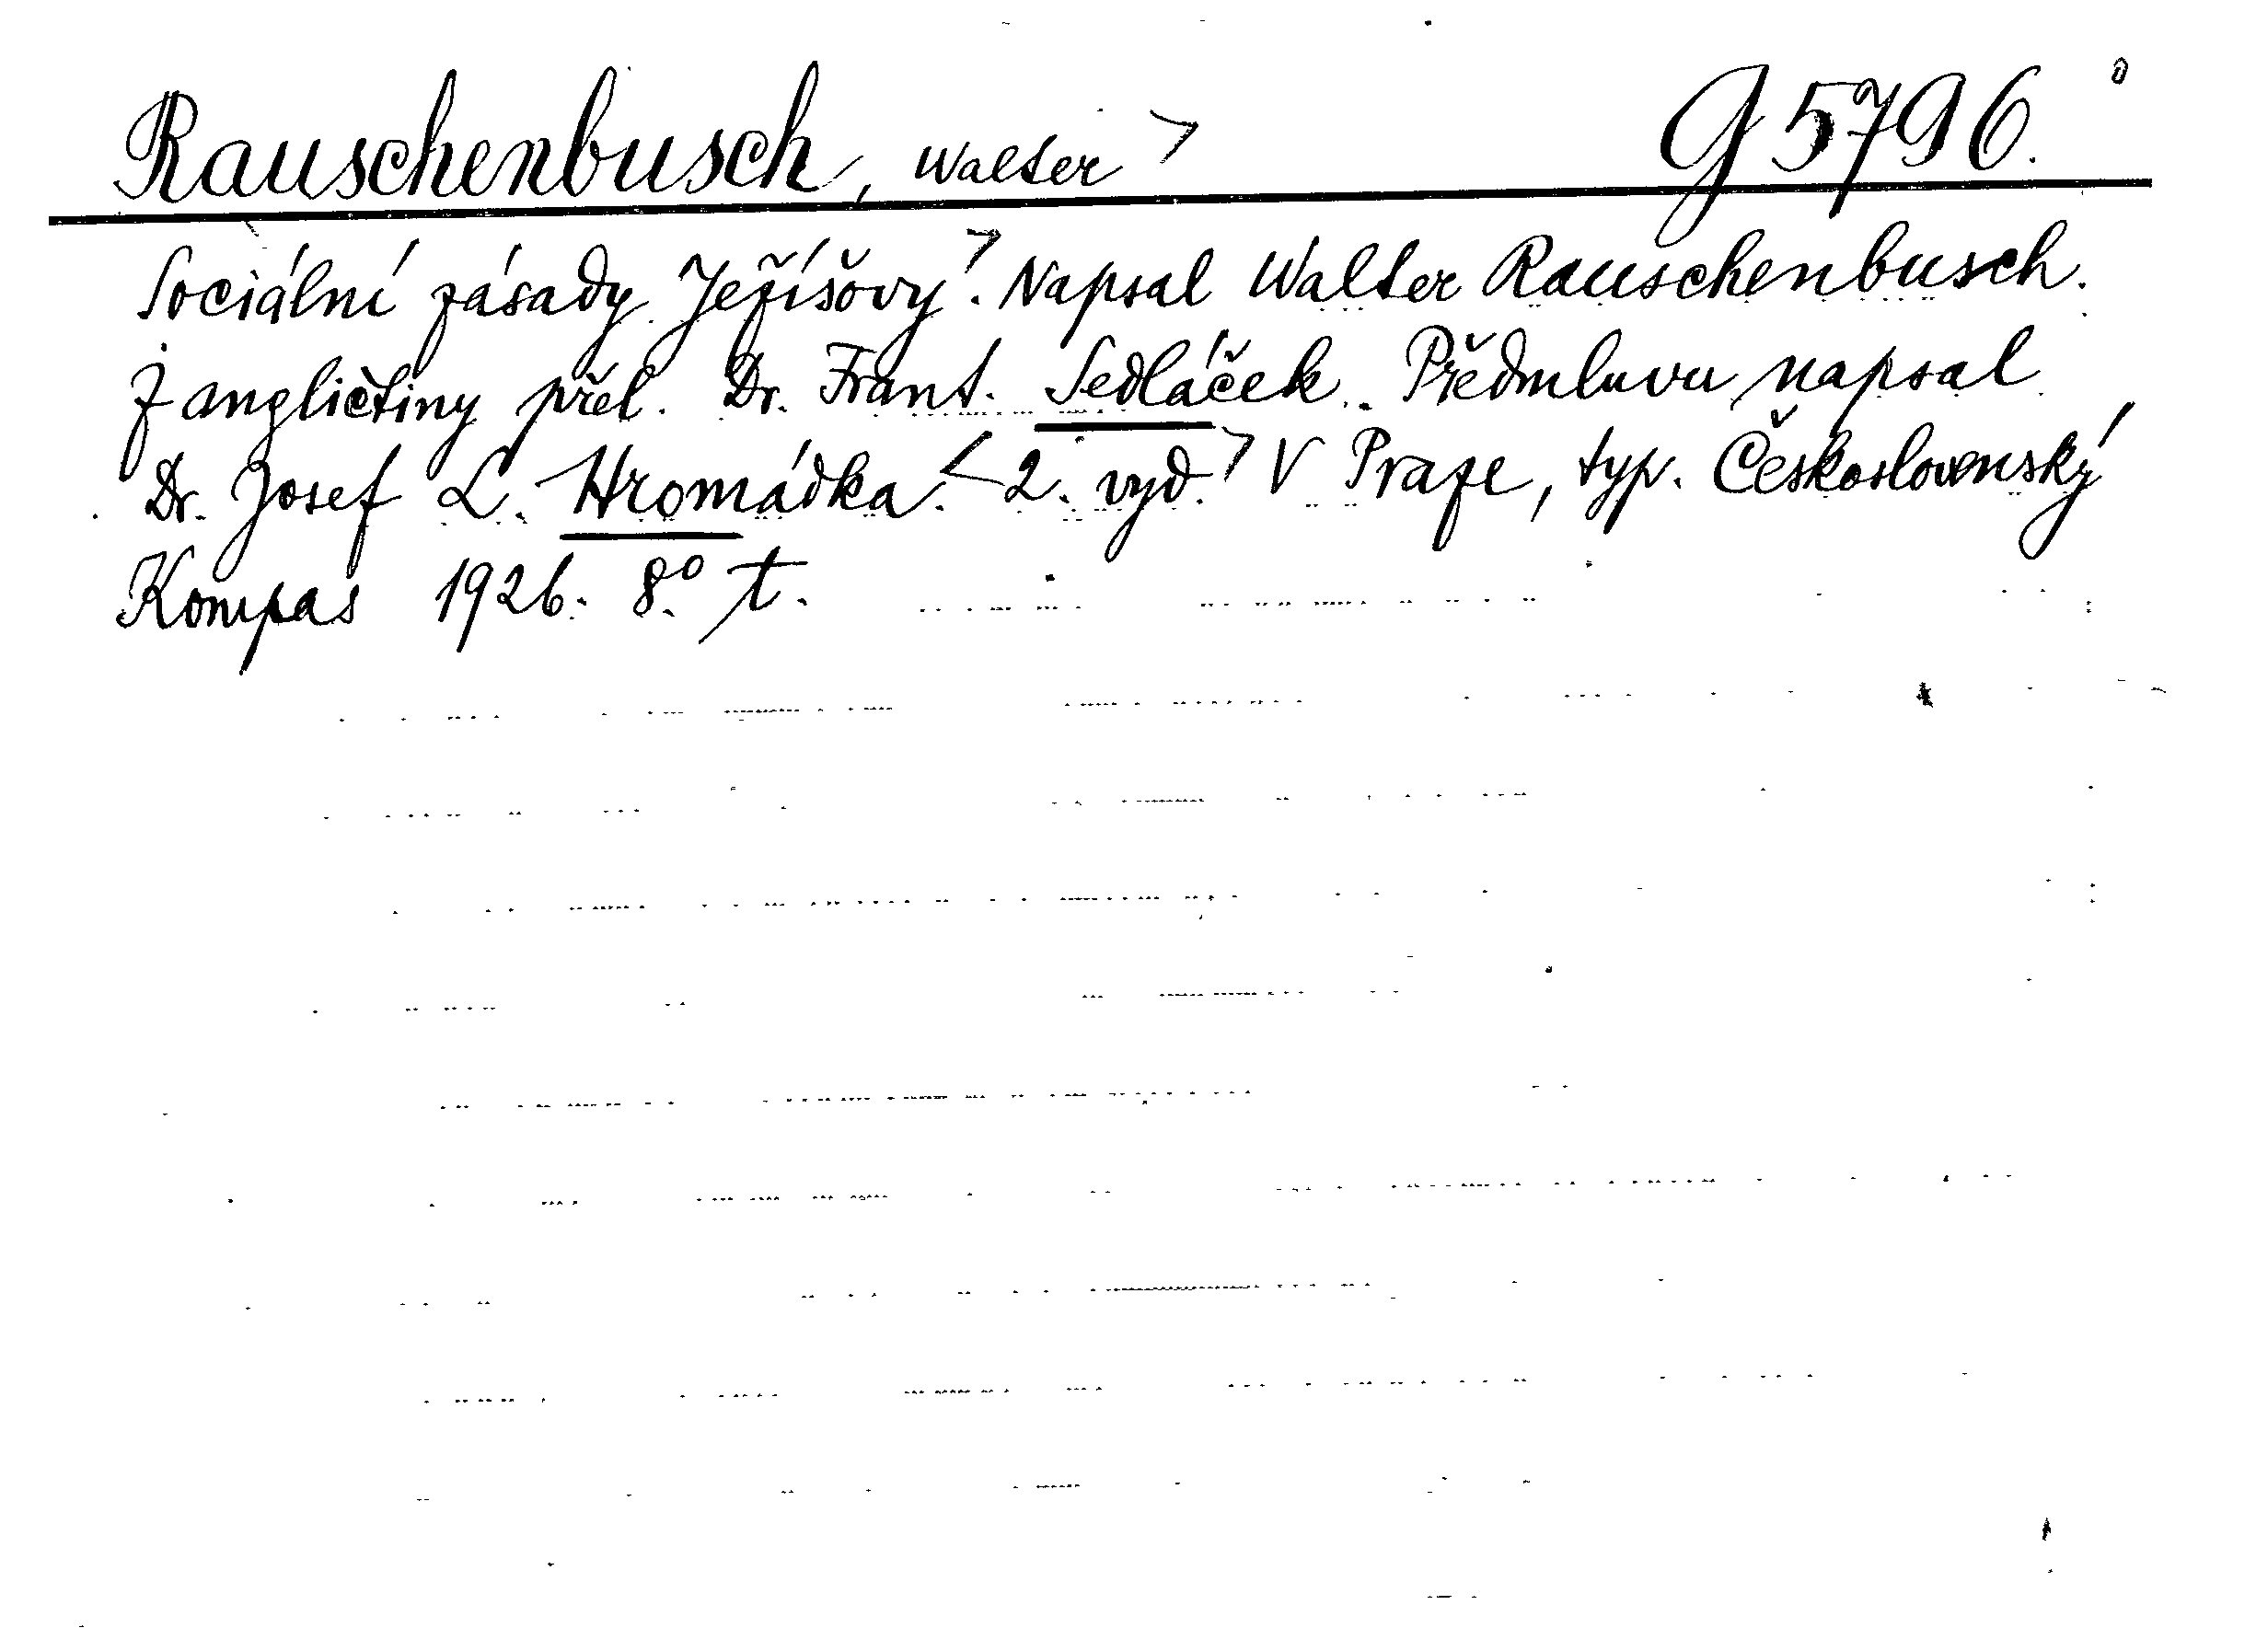 Rauschenbusch, Walter > G 5796.
Sociální zásady Ježíšovy.> Napsal Walter Rauschenbusch.
Z angličtiny přel. Dr. Frant. Sedláček. Předmluvu napsal
Dr. Josef L. Hromádka. <2. vyd.> V Praze, typ. Československý
Kompas 1926. 8.° t.